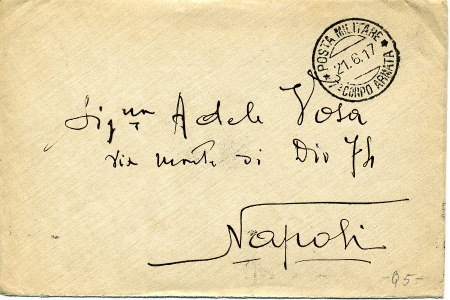 * POSTA MILITARE *
21.6.17
CORPO ARMATA
Signa Adele Vosa
via monte di Dio 74
Napoli
- Q5 -